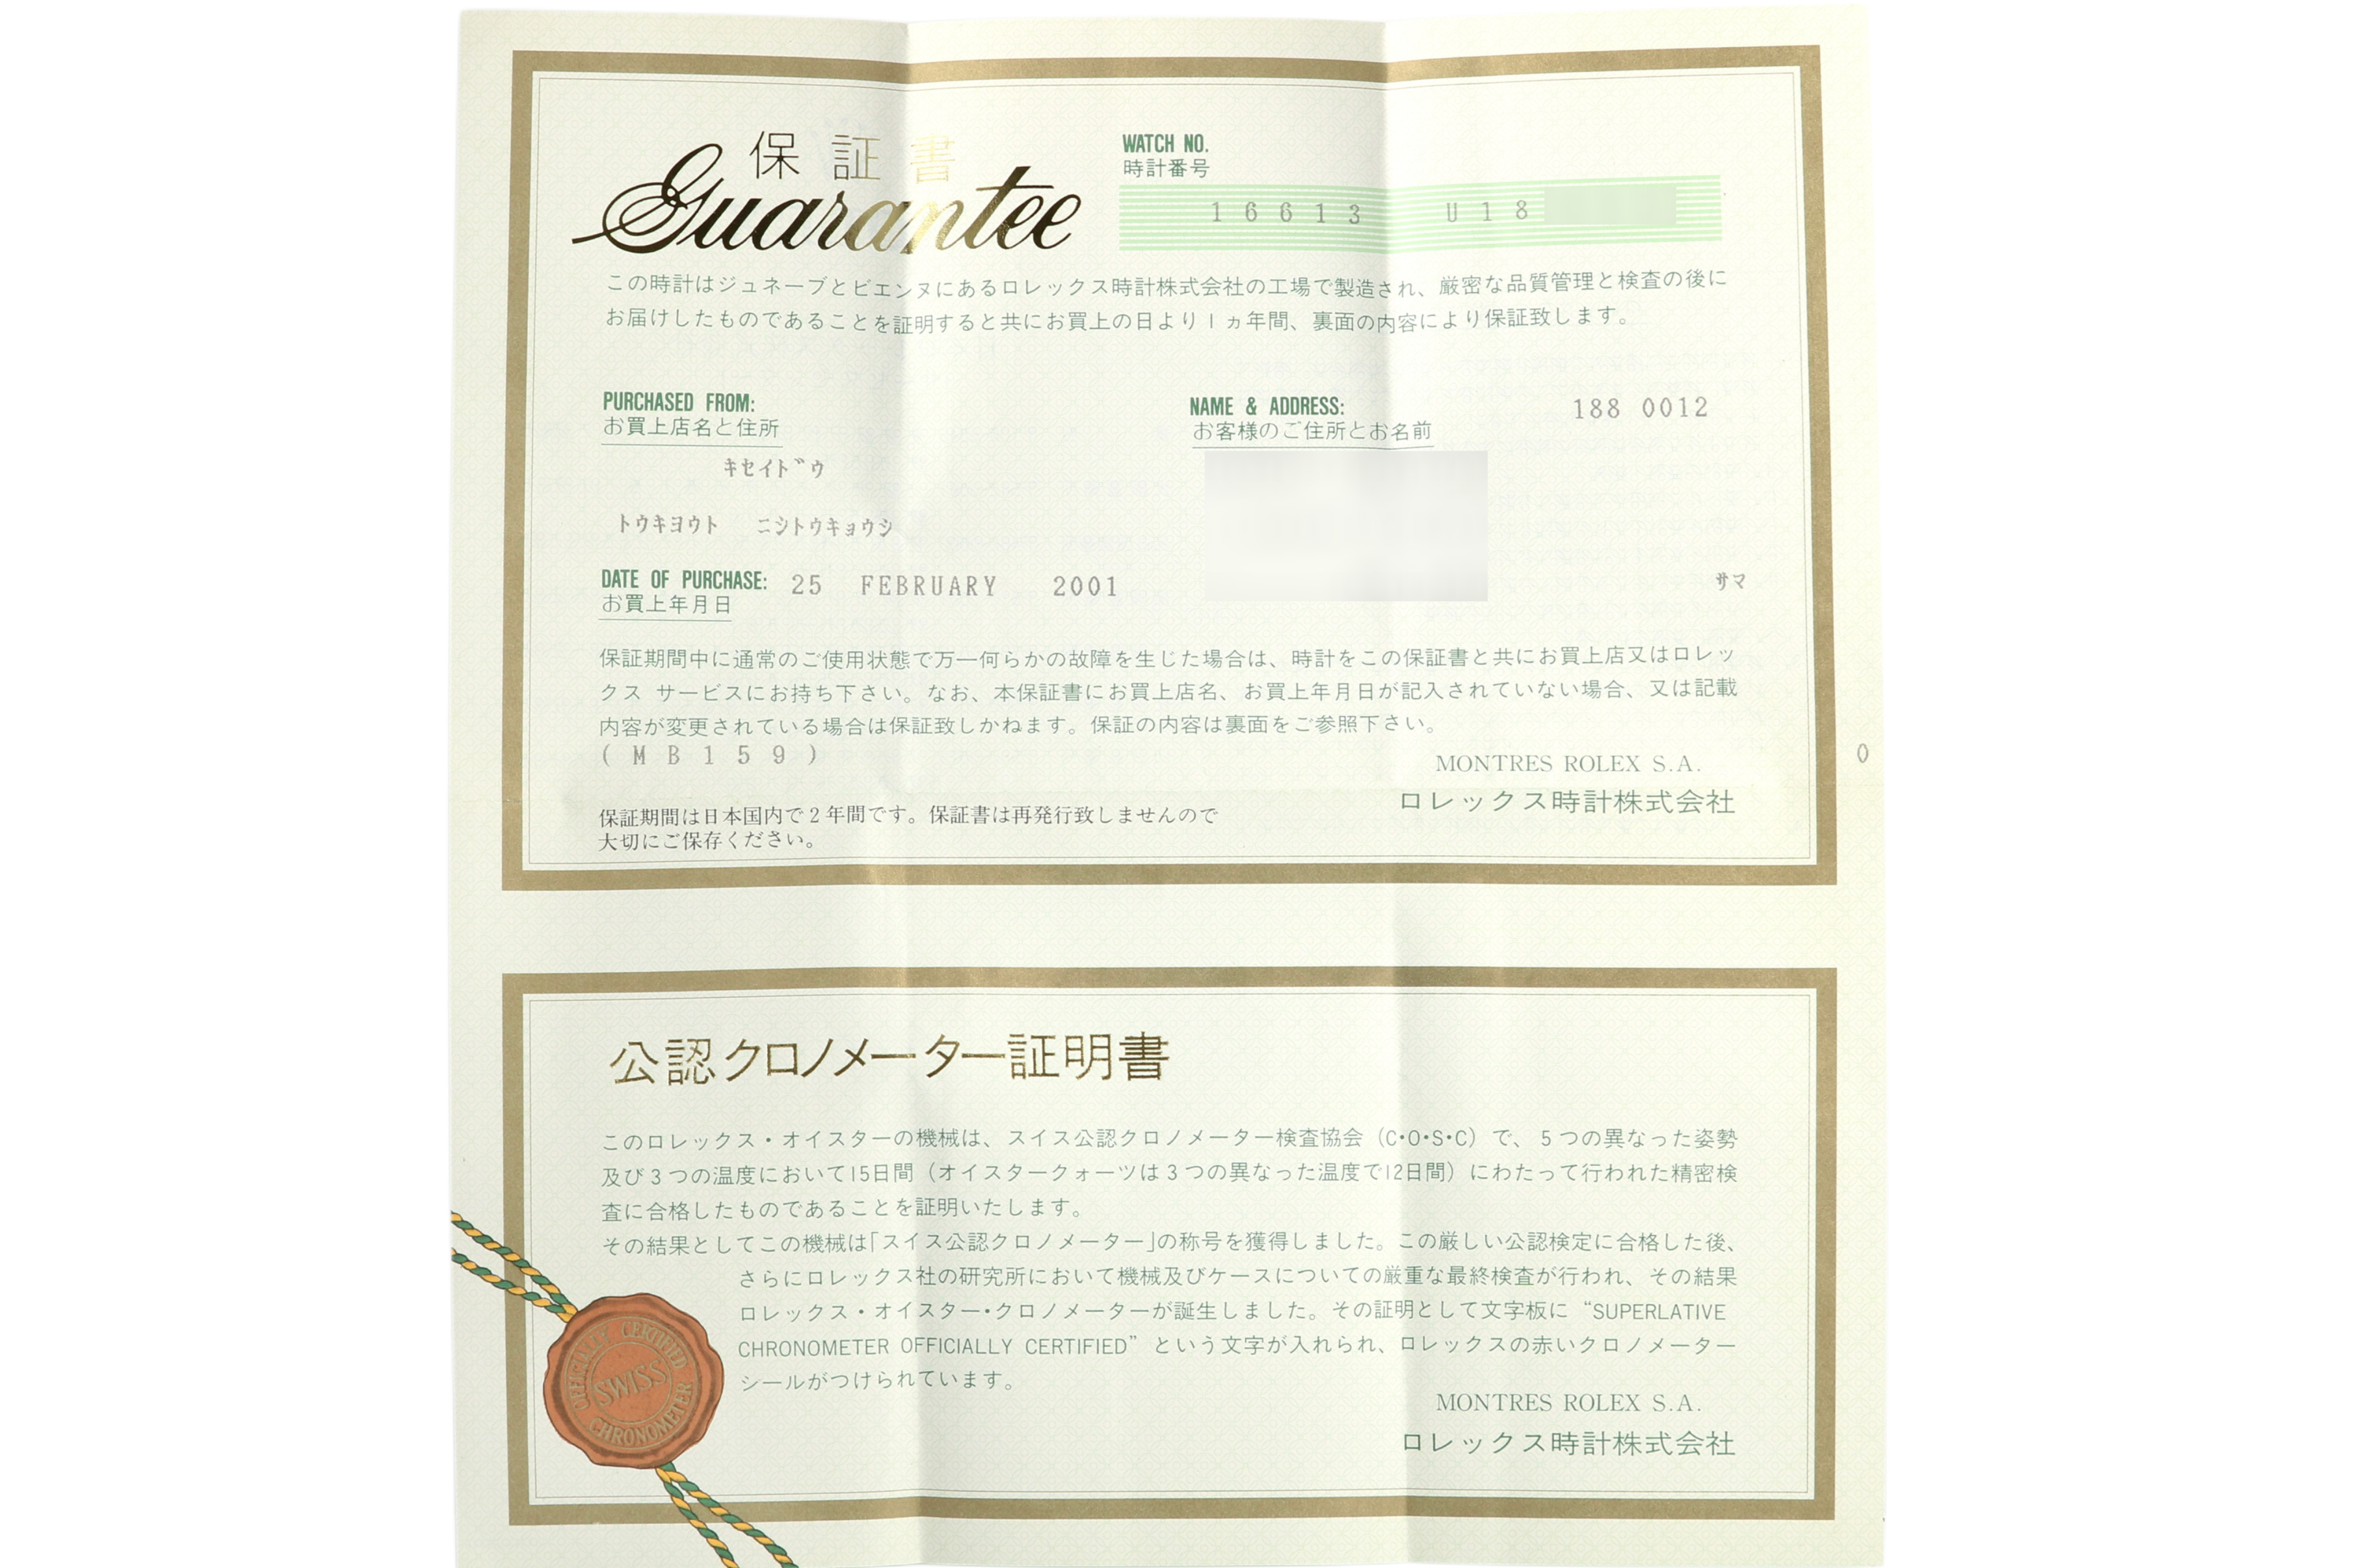 保証書
Guarantee
WATCH NO.
時計番号
16613 U18
この時計はジュネーブとビエンヌにあるロレックス時計株式会社の工場で製造され、厳密な品質管理と検査の後に
お届けしたものであることを証明すると共にお買上の日より1ヵ年間、裏面の内容により保証致します。
PURCHASED FROM:
お買上店名と住所
キセイドウ
トウキヨウト ニシトウキョウシ
DATE OF PURCHASE: 25 FEBRUARY 2001
お買上年月日
NAME & ADDRESS: 188 0012
お客様のご住所とお名前
サマ
保証期間中に通常のご使用状態で万一何らかの故障を生じた場合は、時計をこの保証書と共にお買上店又はロレッ
クス サービスにお持ち下さい。なお、本保証書にお買上店名、お買上年月日が記入されていない場合、又は記載
内容が変更されている場合は保証致しかねます。保証の内容は裏面をご参照下さい。
(MB159)
0
MONTRES ROLEX S.A.
ロレックス時計株式会社
保証期間は日本国内で2年間です。保証書は再発行致しませんので
大切にご保存ください。
公認クロノメーター証明書
このロレックス・オイスターの機械は、スイス公認クロノメーター検査協会(C・O・S・C)で、5つの異なった姿勢
及び3つの温度において15日間(オイスタークォーツは3つの異なった温度で12日間)にわたって行われた精密検
査に合格したものであることを証明いたします。
その結果としてこの機械は「スイス公認クロノメーター」の称号を獲得しました。この厳しい公認検定に合格した後、
さらにロレックス社の研究所において機械及びケースについての厳重な最終検査が行われ、その結果
ロレックス・オイスター・クロノメーターが誕生しました。その証明として文字板に“SUPERLATIVE
CHRONOMETER OFFICIALLY CERTIFIED”という文字が入れられ、ロレックスの赤いクロノメーター
シールがつけられています。
OFFICIALLY CERTIFIED
SWISS
CHRONOMETER
MONTRES ROLEX S.A.
ロレックス時計株式会社